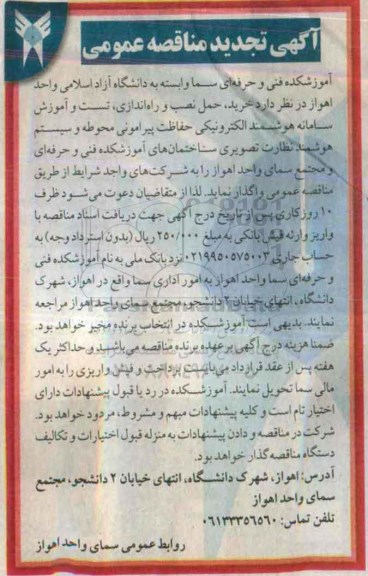 آگهی تجدید مناقصه عمومی
آموزشکده فنی و حرفه‌ای سما وابسته به دانشگاه آزاد اسلامی واحد
اهواز در نظر دارد خرید، حمل نصب و راه‌اندازی، تست و آموزش
سامانه هوشمند الکترونیکی حفاظت پیرامونی محوطه و سیستم
هوشمند نظارت تصویری ساختمان‌های آموزشکده فنی و حرفه‌ای
و مجتمع سمای واحد اهواز را به شرکت‌های واجد شرایط از طریق
مناقصه عمومی واگذار نماید. لذا از متقاضیان دعوت می‌شود ظرف
۱۰ روز کاری پس از تاریخ درج آگهی جهت دریافت اسناد مناقصه با
واریز وارئه فیش بانکی به مبلغ ۲۵۰/۰۰۰ ریال (بدون استرداد وجه) به
حساب جاری ۰۲۱۹۹۵۰۵۷۵۰۰۳ نزد بانک ملی به نام آموزشکده فنی
و حرفه‌ای سما واحد اهواز به امور اداری سما واقع در اهواز، شهرک
دانشگاه، انتهای خیابان ۲ دانشجو، مجتمع سمای واحد اهواز مراجعه
نمایند. بدیهی است آموزشکده در انتخاب برنده مخیر خواهد بود.
ضمنا هزینه درج آگهی بر عهده برنده مناقصه می‌باشد و حداکثر یک
هفته پس از عقد قرارداد می‌بایست پرداخت و فیش واریزی را به امور
مالی سما تحویل نمایند. آموزشکده در رد یا قبول پیشنهادات دارای
اختیار تام است و کلیه پیشنهادات مبهم و مشروط، مردود خواهد بود.
شرکت در مناقصه و دادن پیشنهادات به منزله قبول اختیارات و تکالیف
دستگاه مناقصه‌گذار خواهد بود.
آدرس: اهواز، شهرک دانشگاه، انتهای خیابان ۲ دانشجو، مجتمع
سمای واحد اهواز
تلفن تماس: ۰۶۱۳۳۳۵۶۵۶۰
روابط عمومی سمای واحد اهواز